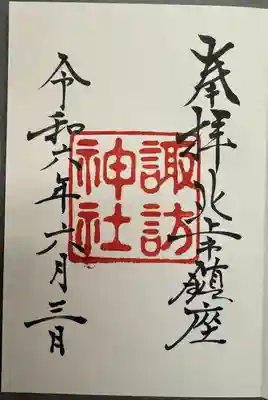 奉拝 鎮座
諏訪
神社
令和六年六月三日